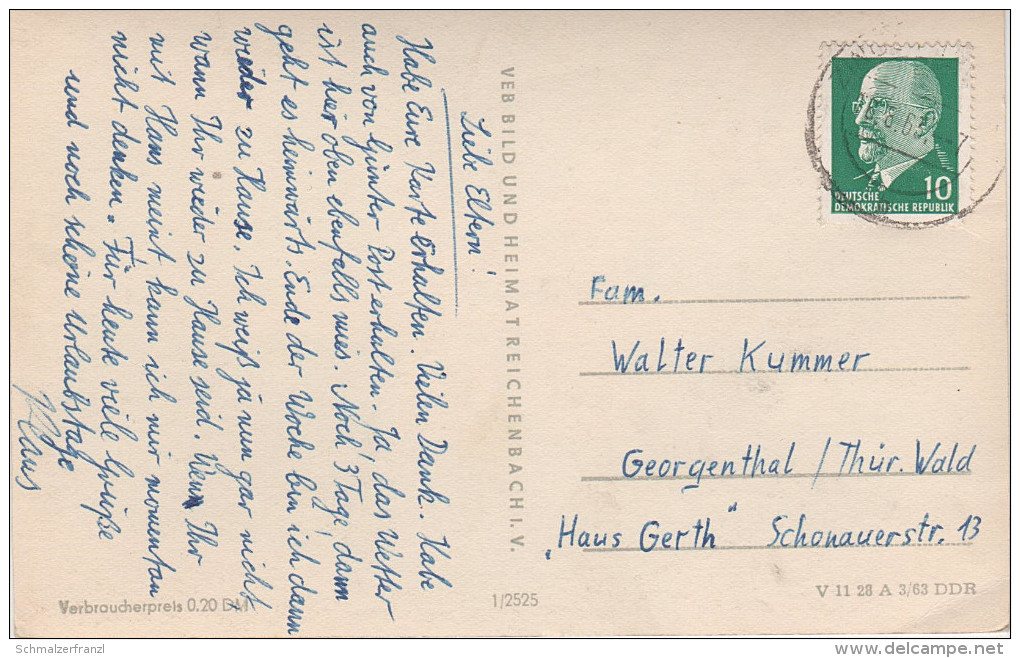 Liebe Eltern!
Habe Eure Karte erhalten. Vielen Dank. Habe
auch von Günter Post erhalten. Ja, das Wetter
ist hier oben ebenfalls mies. Noch 3 Tage, dann
geht es heimwärts. Ende der Woche bin ich dann
wieder zu Hause. Ich weiß ja nun gar nicht
wann Ihr wieder zu Hause seid. Wenn Ihr
mit Hans meint, kann ich mir momentan
nicht denken. Für heute viele Grüße
und noch schöne Urlaubstage
Klaus
VEB BILD UND HEIMAT REICHENBACH I. V.
DEUTSCHE
DEMOKRATISCHE REPUBLIK
10
Fam.
Walter Kummer
Georgenthal / Thür. Wald
„Haus Gerth" Schönauerstr. 13
Verbraucherpreis 0.20 DM
1/2525
V 11 28 A 3/63 DDR
Schmalzerfranzl
delcampe.net